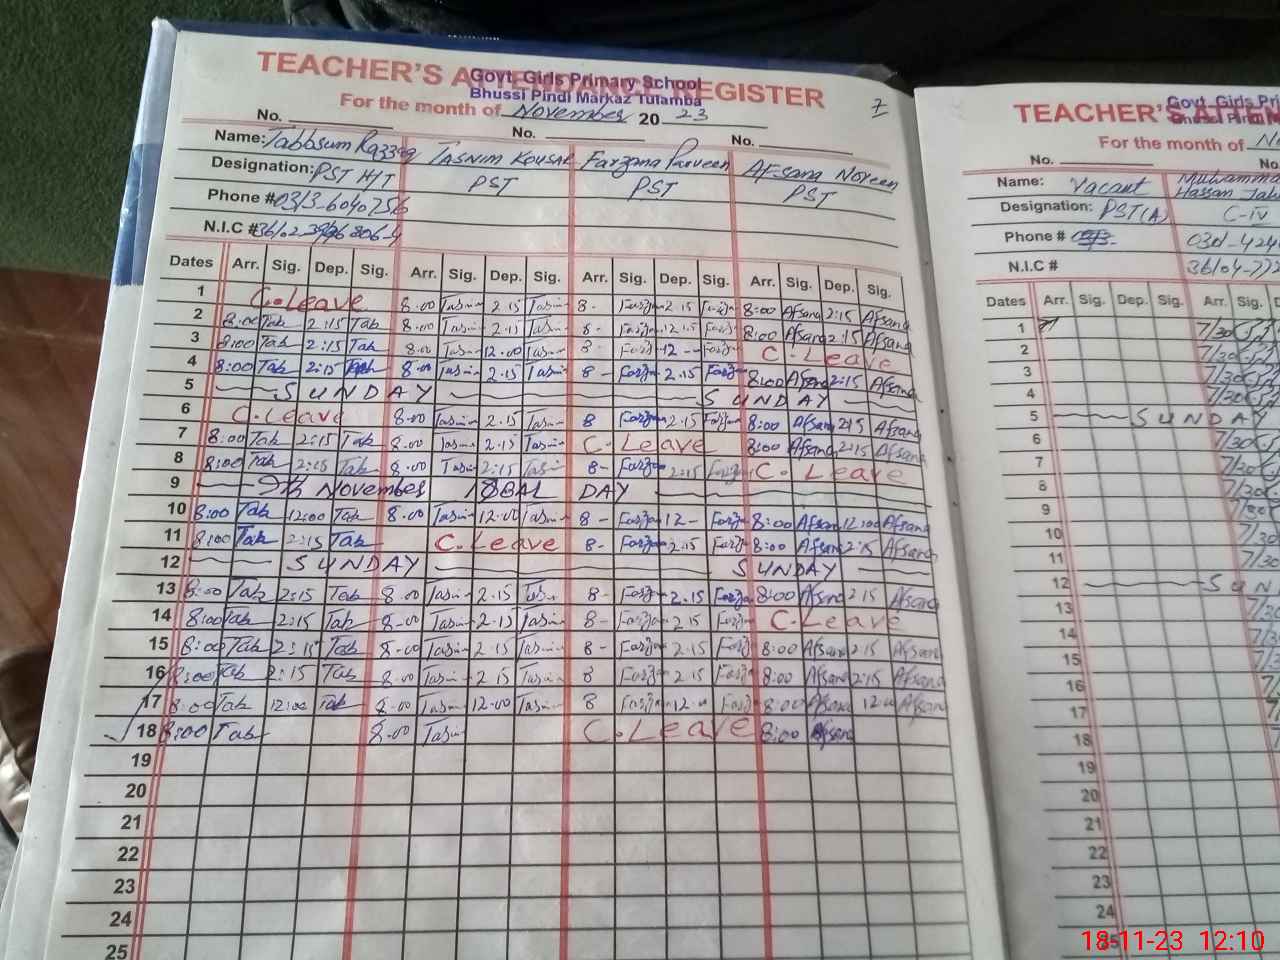 TEACHER'S ATTENDANCE REGISTER
Govt. Girls Primary School
Bhussi Pindi Markaz Tulamba
7
For the month of November 20 23
No. No. No.
Name: Tabbsum Razzaq TASNIM KOUSAR Farzana Parveen Afsana Noreen
Designation: PST H/T PST PST PST
Phone # 0313-6040756
N.I.C #
Dates Arr. Sig. Dep. Sig. Arr. Sig. Dep. Sig. Arr. Sig. Dep. Sig. Arr. Sig. Dep. Sig.
1 C.Leave 8.00 Tasnim 2.15 Tasnim 8- Farzana 2.15 Farzana 8:00 Afsana 2:15 Afsana
2 8:00 Tab 2:15 Tab 8.00 Tasnim 2.15 Tasnim 8- Farzana 12.15 Farzana 8:00 Afsana 2:15 Afsana
3 8:00 Tab 2:15 Tab 8.00 Tasnim 12.00 Tasnim 8- Farzana 12 - Farzana C-Leave
4 8:00 Tab 2:15 Tab 8.00 Tasnim 2.15 Tasnim 8- Farzana 2.15 Farzana 8:00 Afsana 2:15 Afsana
5 SUNDAY SUNDAY
6 C.Leave 8.00 Tasnim 2.15 Tasnim 8 Farzana 2.15 Farzana 8:00 Afsana 2:15 Afsana
7 8:00 Tab 2:15 Tab 8.00 Tasnim 2.15 Tasnim C-Leave 8:00 Afsana 2:15 Afsana
8 8:00 Tab 2:15 Tab 8.00 Tasnim 2:15 Tasnim 8- Farzana 2:15 Farzana C-Leave
9 9th November IQBAL DAY
10 8:00 Tab 12:00 Tab 8.00 Tasnim 12.00 Tasnim 8- Farzana 12- Farzana 8:00 Afsana 12:00 Afsana
11 8:00 Tab 2:15 Tab C.Leave 8- Farzana 2.15 Farzana 8:00 Afsana 2:15 Afsana
12 SUNDAY SUNDAY
13 8:00 Tab 2:15 Tab 8.00 Tasnim 2.15 Tasnim 8- Farzana 2.15 Farzana 8:00 Afsana 2:15 Afsana
14 8:00 Tab 2:15 Tab 8-00 Tasnim 2.15 Tasnim 8- Farzana 2.15 Farzana C-Leave
15 8:00 Tab 2:15 Tab 8-00 Tasnim 2.15 Tasnim 8- Farzana 2.15 Farzana 8:00 Afsana 2:15 Afsana
16 8:00 Tab 2:15 Tab 8.00 Tasnim 2.15 Tasnim 8 Farzana 2.15 Farzana 8:00 Afsana 2:15 Afsana
17 8:00 Tab 12:00 Tab 8.00 Tasnim 12.00 Tasnim 8 Farzana 12.00 Farzana 8:00 Afsana 12:00 Afsana
18 8:00 Tab 8.00 Tasnim C.Leave 8:00 Afsana
19
20
21
22
23
24
25
TEACHER'S
Govt. Girls
For the month of
No. No.
Name: Vacant Muhammad Hassan
Designation: PST(A) C-iv
Phone #
N.I.C #
Dates Arr. Sig. Dep. Sig. Arr. Sig.
1 7/30
2 7/30
3 7/30
4 7/30
5 SUNDAY
6 7/30
7 7/30
8 7/30
9
10 7/30
11 7/30
12
13
14
15
16
17
18
19
20
21
22
23
24
25
18-11-23 12:10